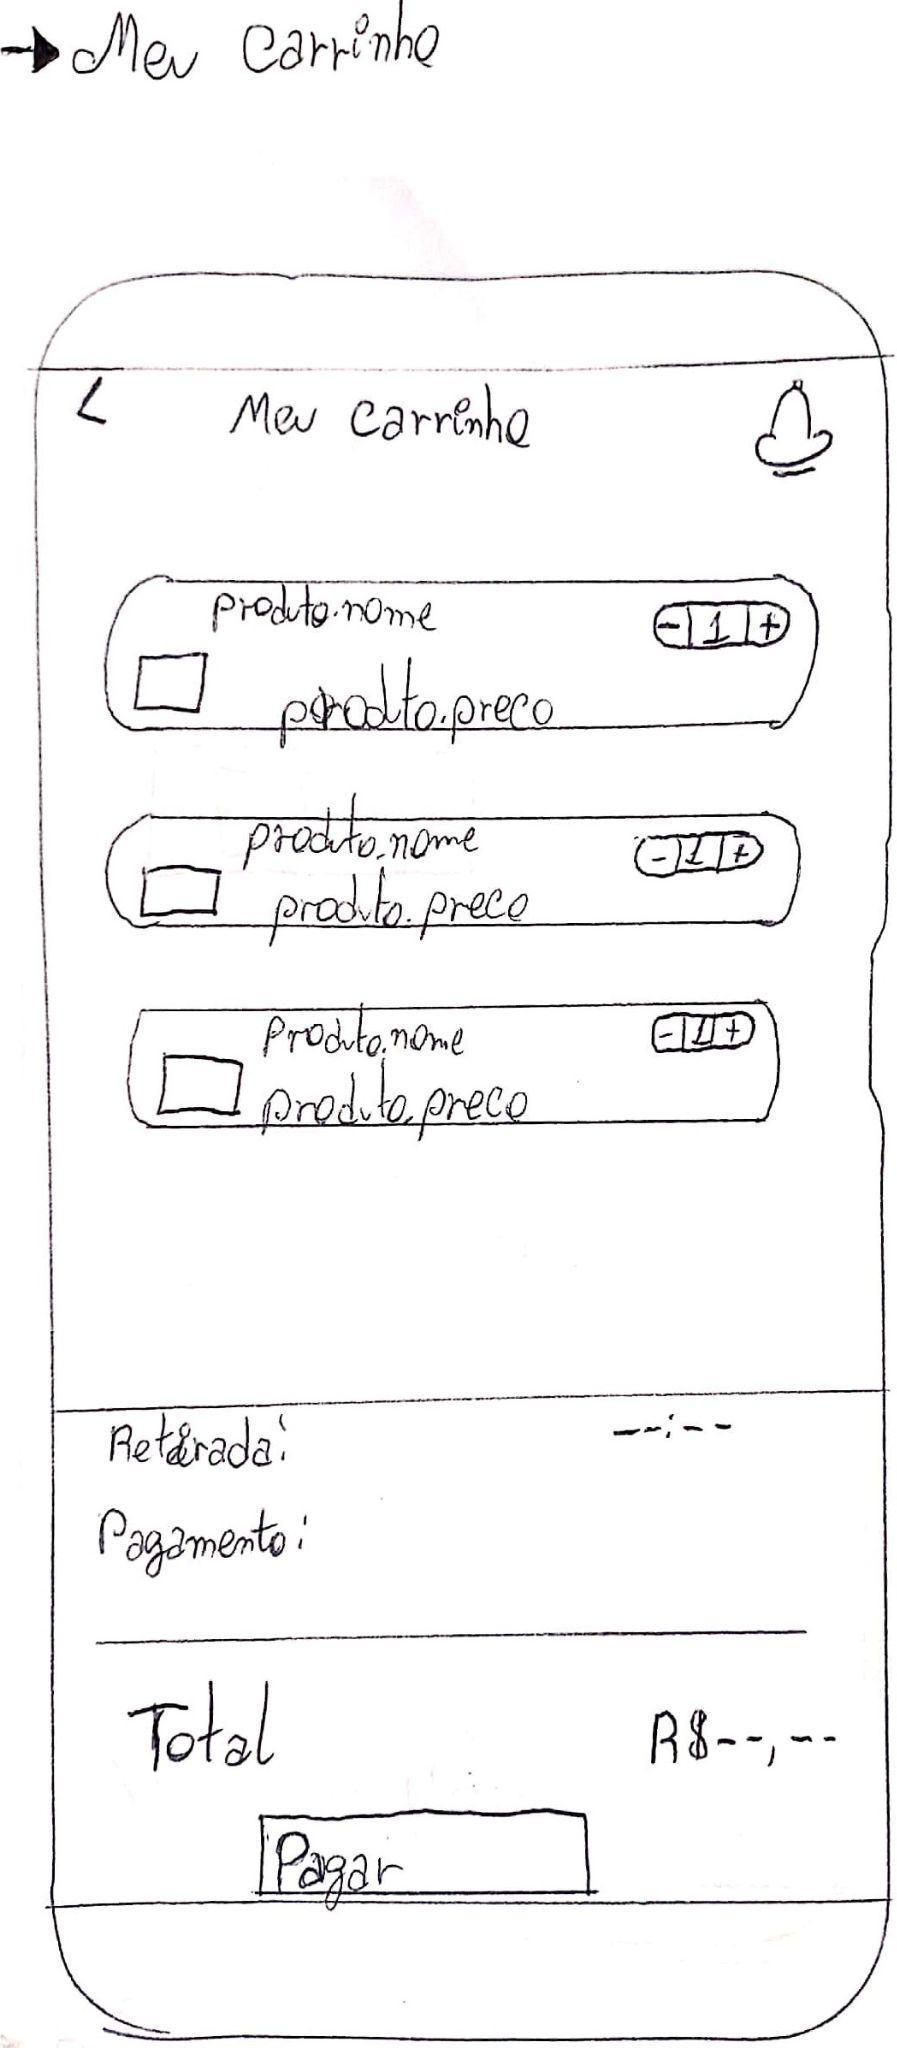 → Meu Carrinho
< Meu carrinho
produto.nome - 1 +
prodto.preco
produto.nome - 1 +
produto.preco
Produto.nome - 1 +
produto.preco
Retirada: --:--
Pagamento:
Total R$--,--
Pagar